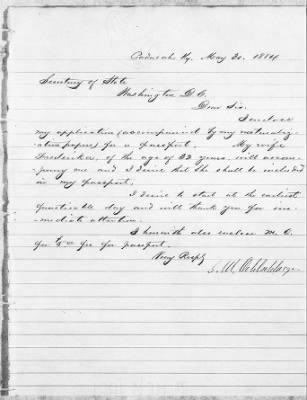 Paducah Ky. May 20. 1884
Secretary of State
Washington D.C.
Dear Sir.
I enclose
my application (accompanied by my naturaliz-
ation papers) for a passport. My wife
Frederika, of the age of 32 years, will accom-
pany me and I desire that she shall be included
in my passport.
I desire to start at the earliest
practicable day and will thank you for im-
mediate attention.
I herewith also enclose M. O.
for fee for passport.
Very Respty